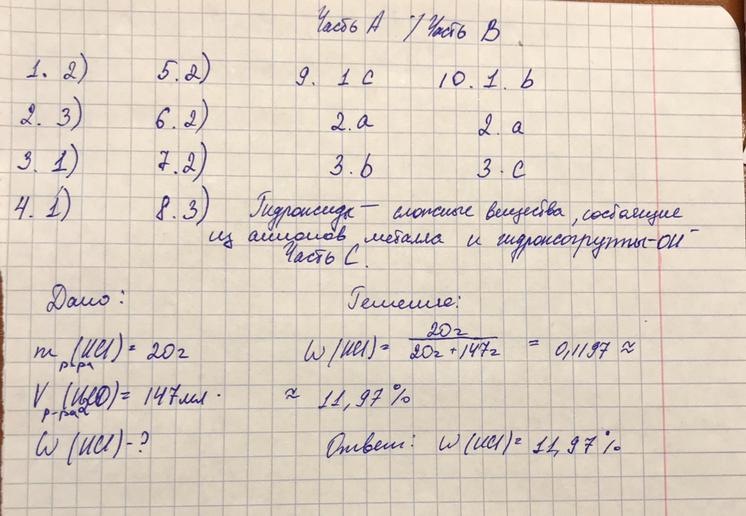 Часть А / Часть В
1. 2) 5. 2) 9. 1 c 10. 1. b
2. 3) 6. 2) 2. a 2. a
3. 1) 7. 2) 3. b 3. c
4. 1) 8. 3) Гидроксиды — сложные вещества, состоящие
из атомов металла и гидроксогруппы -ОН⁻
Часть С.
Дано: Решение:
m р-ра (HCl) = 20г W (HCl) = 20г / 20г + 147г = 0,1197 ≈
V (H2O) = 147мл. ≈ 11,97 %
W (HCl) - ? Ответ: W (HCl) = 11,97 %